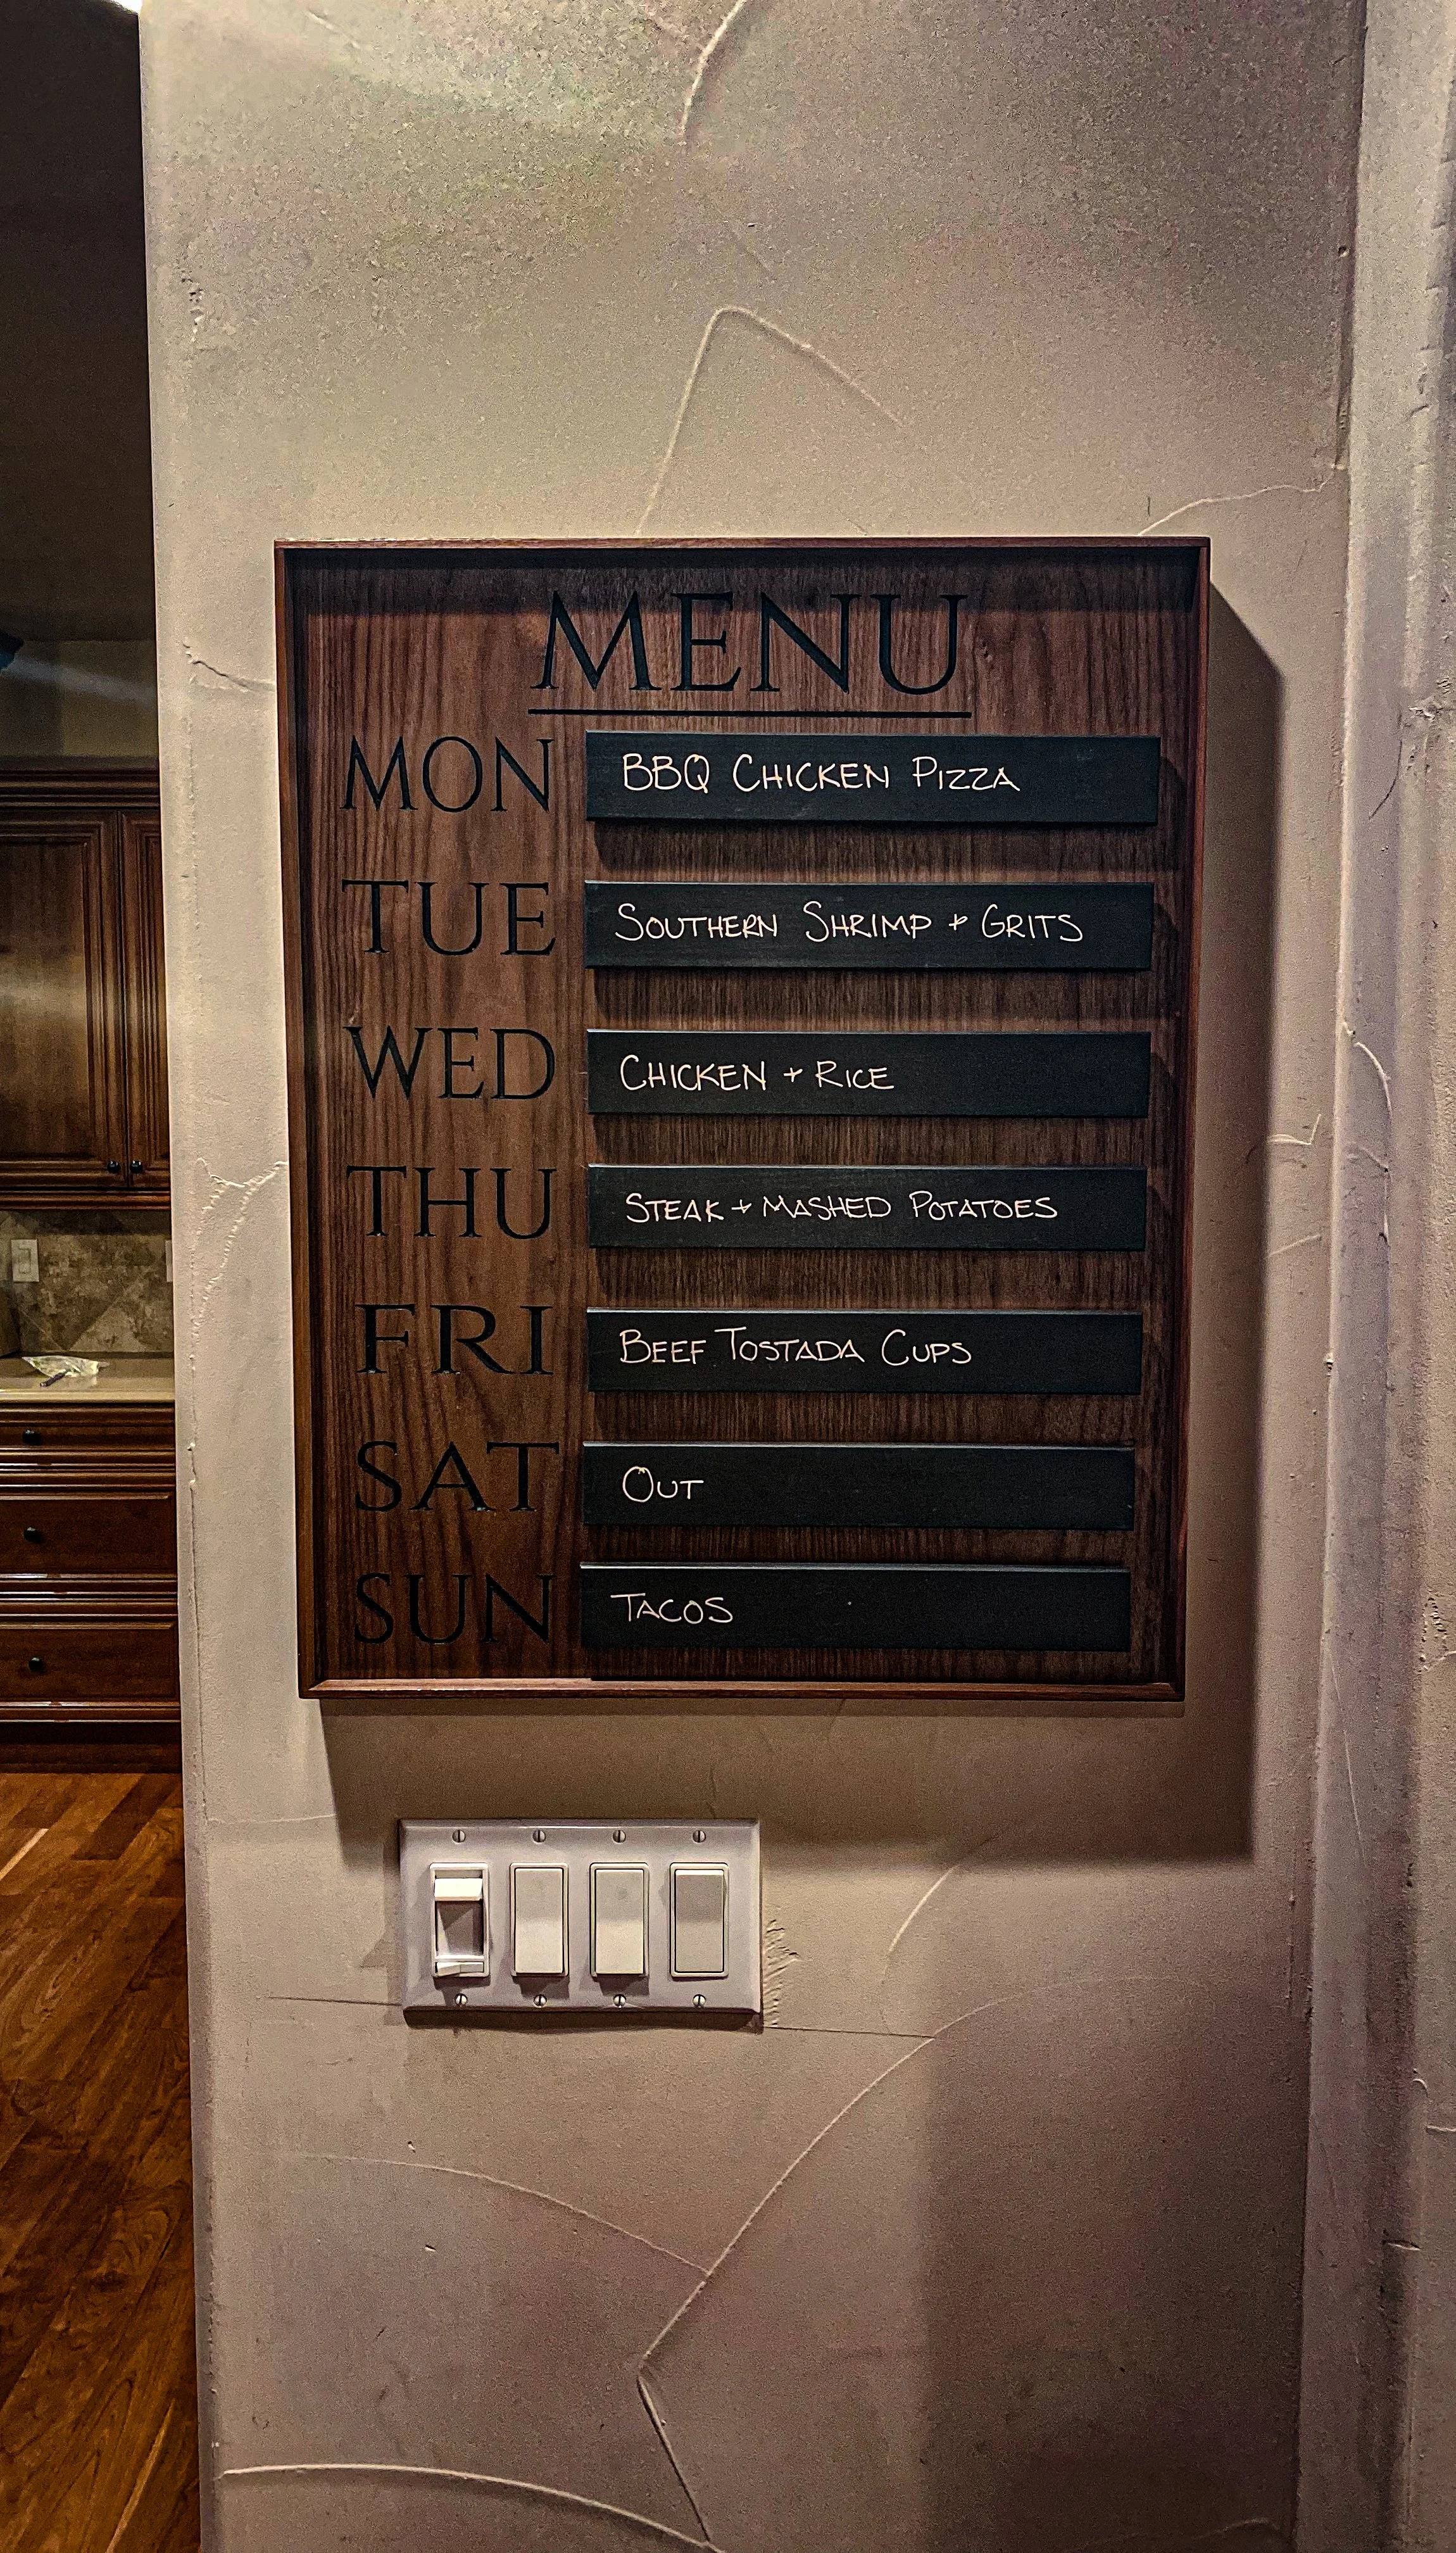 MENU
MON BBQ CHICKEN PIZZA
TUE SOUTHERN SHRIMP + GRITS
WED CHICKEN + RICE
THU STEAK + MASHED POTATOES
FRI BEEF TOSTADA CUPS
SAT OUT
SUN TACOS